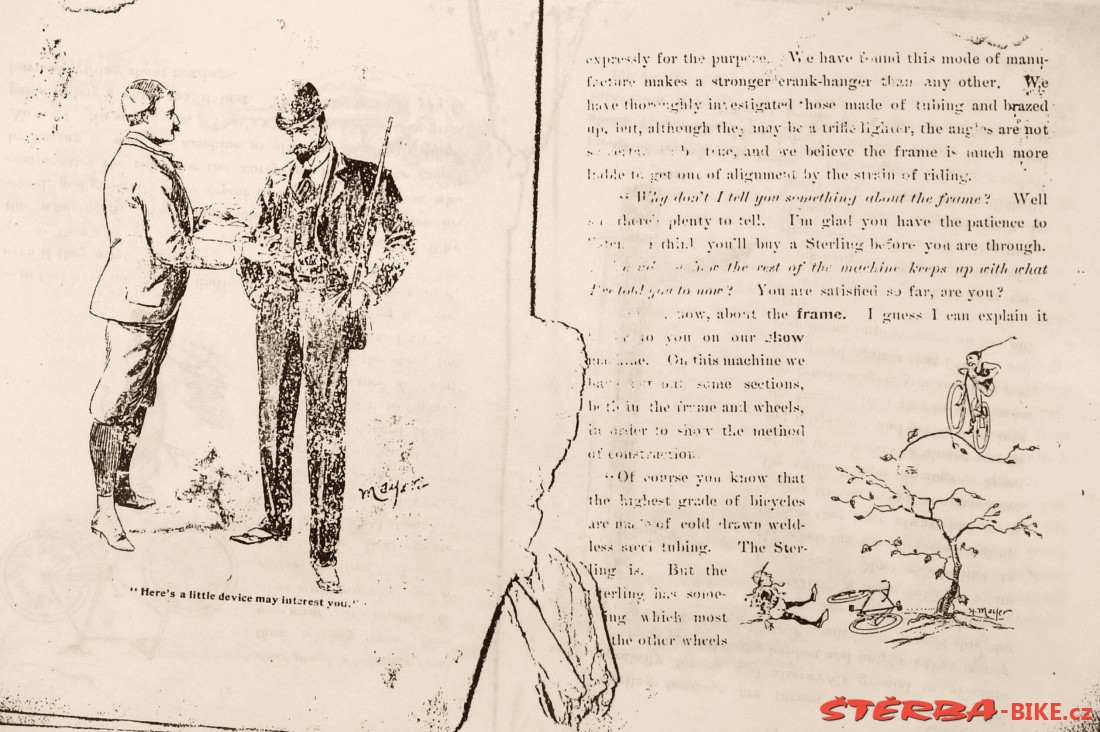 Mayer
"Here's a little device may interest you."
expressly for the purpose. We have found this mode of manu-
facture makes a stronger crank-hanger than any other. We
have thoroughly investigated those made of tubing and brazed
up, but, although they may be a trifle lighter, the angles are not
so certain to be true, and we believe the frame is much more
liable to get out of alignment by the strain of riding.
"Why don't I tell you something about the frame? Well
sir, there's plenty to tell. I'm glad you have the patience to
listen. I think you'll buy a Sterling before you are through.
how the rest of the machine keeps up with what
I've told you to now? You are satisfied so far, are you?
now, about the frame. I guess I can explain it
to you on our show
machine. On this machine we
have cut out some sections,
both in the frame and wheels,
in order to show the method
of construction.
"Of course you know that
the highest grade of bicycles
are made of cold drawn weld-
less steel tubing. The Ster-
ling is. But the
Sterling has some-
thing which most
the other wheels
H. Mayer
ŠTĚRBA-BIKE.cz